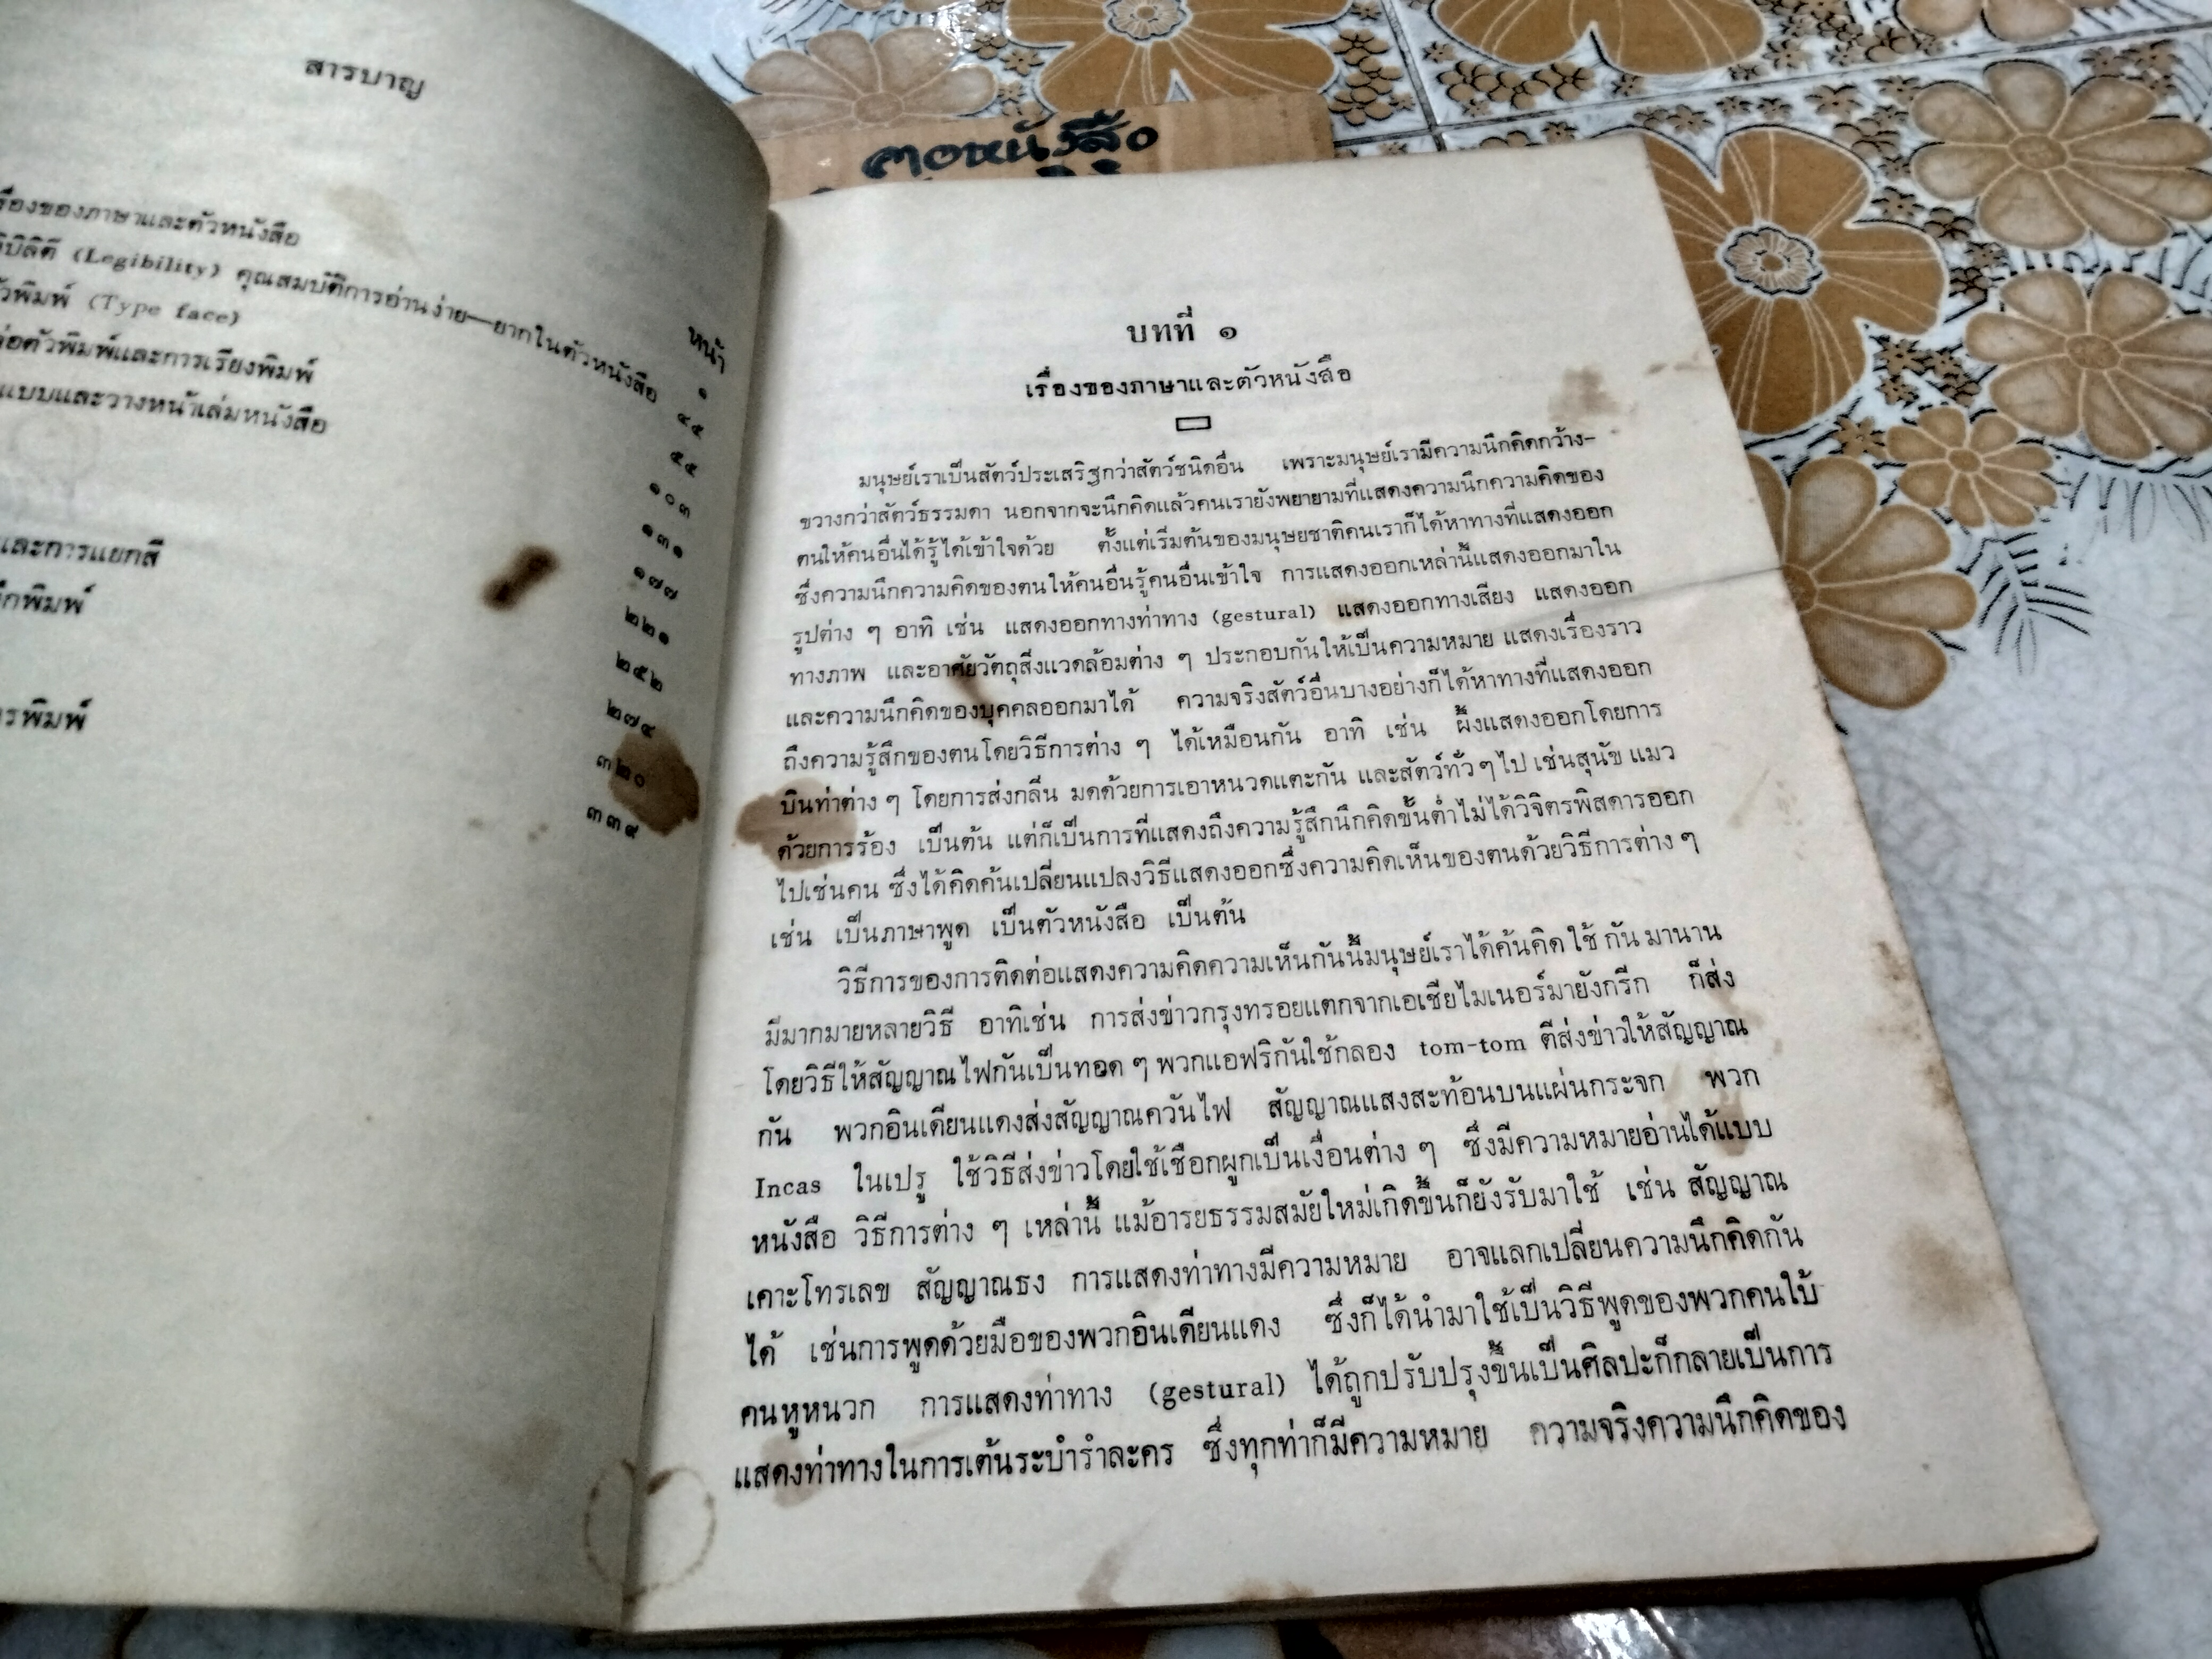 สารบาญ
หน้า
รื่องของภาษาและตัวหนังสือ ๑
(Legibility) คุณสมบัติการอ่านง่าย—ยากในตัวหนังสือ ๔๕
วพิมพ์ (Type face) ๕๕
ล่อตัวพิมพ์และการเรียงพิมพ์ ๑๐๓
แบบและวางหน้าเล่มหนังสือ ๑๓๑
๑๗๗
และการแยกสี ๒๒๑
กพิมพ์ ๒๕๒
๒๗๙
๓๒๐
รพิมพ์ ๓๓๙
คอหนังสือ
บทที่ ๑
เรื่องของภาษาและตัวหนังสือ
มนุษย์เราเป็นสัตว์ประเสริฐกว่าสัตว์ชนิดอื่น เพราะมนุษย์เรามีความนึกคิดกว้าง-
ขวางกว่าสัตว์ธรรมดา นอกจากจะนึกคิดแล้วคนเรายังพยายามที่แสดงความนึกความคิดของ
ตนให้คนอื่นได้รู้ได้เข้าใจด้วย ตั้งแต่เริ่มต้นของมนุษยชาติคนเราก็ได้หาทางที่แสดงออก
ซึ่งความนึกความคิดของตนให้คนอื่นรู้คนอื่นเข้าใจ การแสดงออกเหล่านี้แสดงออกมาใน
รูปต่าง ๆ อาทิ เช่น แสดงออกทางท่าทาง (gestural) แสดงออกทางเสียง แสดงออก
ทางภาพ และอาศัยวัตถุสิ่งแวดล้อมต่าง ๆ ประกอบกันให้เป็นความหมาย แสดงเรื่องราว
และความนึกคิดของบุคคลออกมาได้ ความจริงสัตว์อื่นบางอย่างก็ได้หาทางที่แสดงออก
ถึงความรู้สึกของตนโดยวิธีการต่าง ๆ ได้เหมือนกัน อาทิ เช่น ผึ้งแสดงออกโดยการ
บินท่าต่าง ๆ โดยการส่งกลิ่น มดด้วยการเอาหนวดแตะกัน และสัตว์ทั่ว ๆ ไป เช่นสุนัข แมว
ด้วยการร้อง เป็นต้น แต่ก็เป็นการที่แสดงถึงความรู้สึกนึกคิดขั้นต่ำไม่ได้วิจิตรพิสดารออก
ไปเช่นคน ซึ่งได้คิดค้นเปลี่ยนแปลงวิธีแสดงออกซึ่งความคิดเห็นของตนด้วยวิธีการต่าง ๆ
เช่น เป็นภาษาพูด เป็นตัวหนังสือ เป็นต้น
วิธีการของการติดต่อแสดงความคิดความเห็นกันนี้มนุษย์เราได้ค้นคิด ใช้ กัน มานาน
มีมากมายหลายวิธี อาทิเช่น การส่งข่าวกรุงทรอยแตกจากเอเซียไมเนอร์มายังกรีก ก็ส่ง
โดยวิธีให้สัญญาณไฟกันเป็นทอด ๆ พวกแอฟริกันใช้กลอง tom-tom ตีส่งข่าวให้สัญญาณ
กัน พวกอินเดียนแดงส่งสัญญาณควันไฟ สัญญาณแสงสะท้อนบนแผ่นกระจก พวก
Incas ในเปรู ใช้วิธีส่งข่าวโดยใช้เชือกผูกเป็นเงื่อนต่าง ๆ ซึ่งมีความหมายอ่านได้แบบ
หนังสือ วิธีการต่าง ๆ เหล่านี้ แม้อารยธรรมสมัยใหม่เกิดขึ้นก็ยังรับมาใช้ เช่น สัญญาณ
เคาะโทรเลข สัญญาณธง การแสดงท่าทางมีความหมาย อาจแลกเปลี่ยนความนึกคิดกัน
ได้ เช่นการพูดด้วยมือของพวกอินเดียนแดง ซึ่งก็ได้นำมาใช้เป็นวิธีพูดของพวกคนใบ้
คนหูหนวก การแสดงท่าทาง (gestural) ได้ถูกปรับปรุงขึ้นเป็นศิลปะก็กลายเป็นการ
แสดงท่าทางในการเต้นระบำรำละคร ซึ่งทุกท่าก็มีความหมาย ความจริงความนึกคิดของ